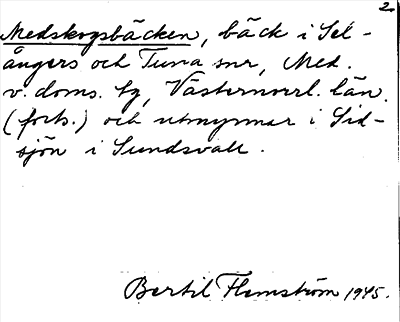 2.
Medskogsbäcken, bäck i Sel-
ångers och Tuna snr, Med.
v. doms. hg, Västernorrl. län.
(forts.) och utmynnar i Sid-
sjön i Sundsvall.
Bertil Flemström 1945.